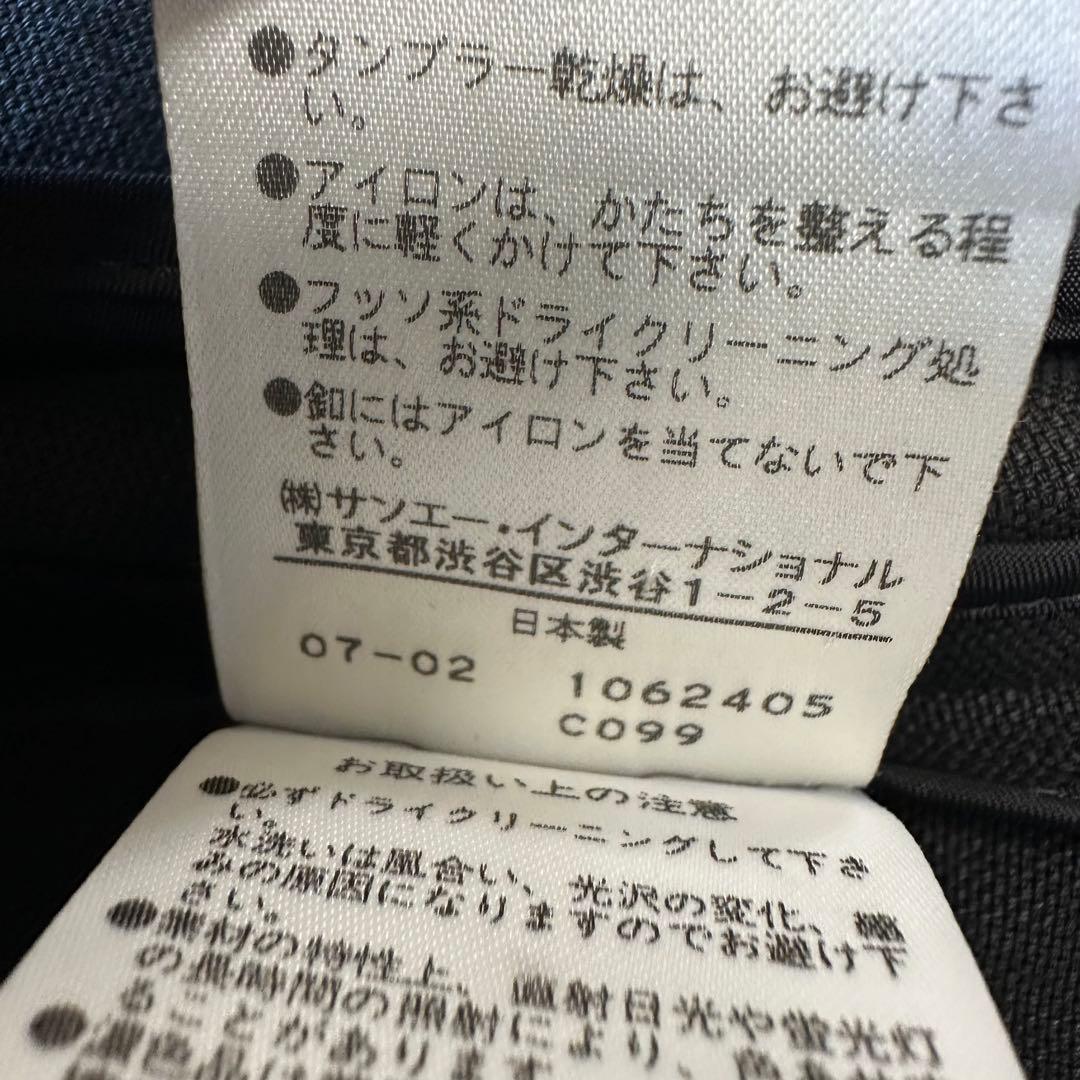 ●タンブラー乾燥は、お避け下さ
い。
●アイロンは、かたちを整える程
度に軽くかけて下さい。
●フッソ系ドライクリーニング処
理は、お避け下さい。
●釦にはアイロンを当てないで下
さい。
㈱サンエー・インターナショナル
東京都渋谷区渋谷1-2-5
日本製
07-02 1062405
C099
お取扱い上の注意
●必ずドライクリーニングして下さ
い。
水洗いは風合い、光沢の変化、縮
みの原因になりますのでお避け下
さい。
●素材の特性上、直射日光や蛍光灯
の長時間の照射により、
ることがあります
●濃色品は